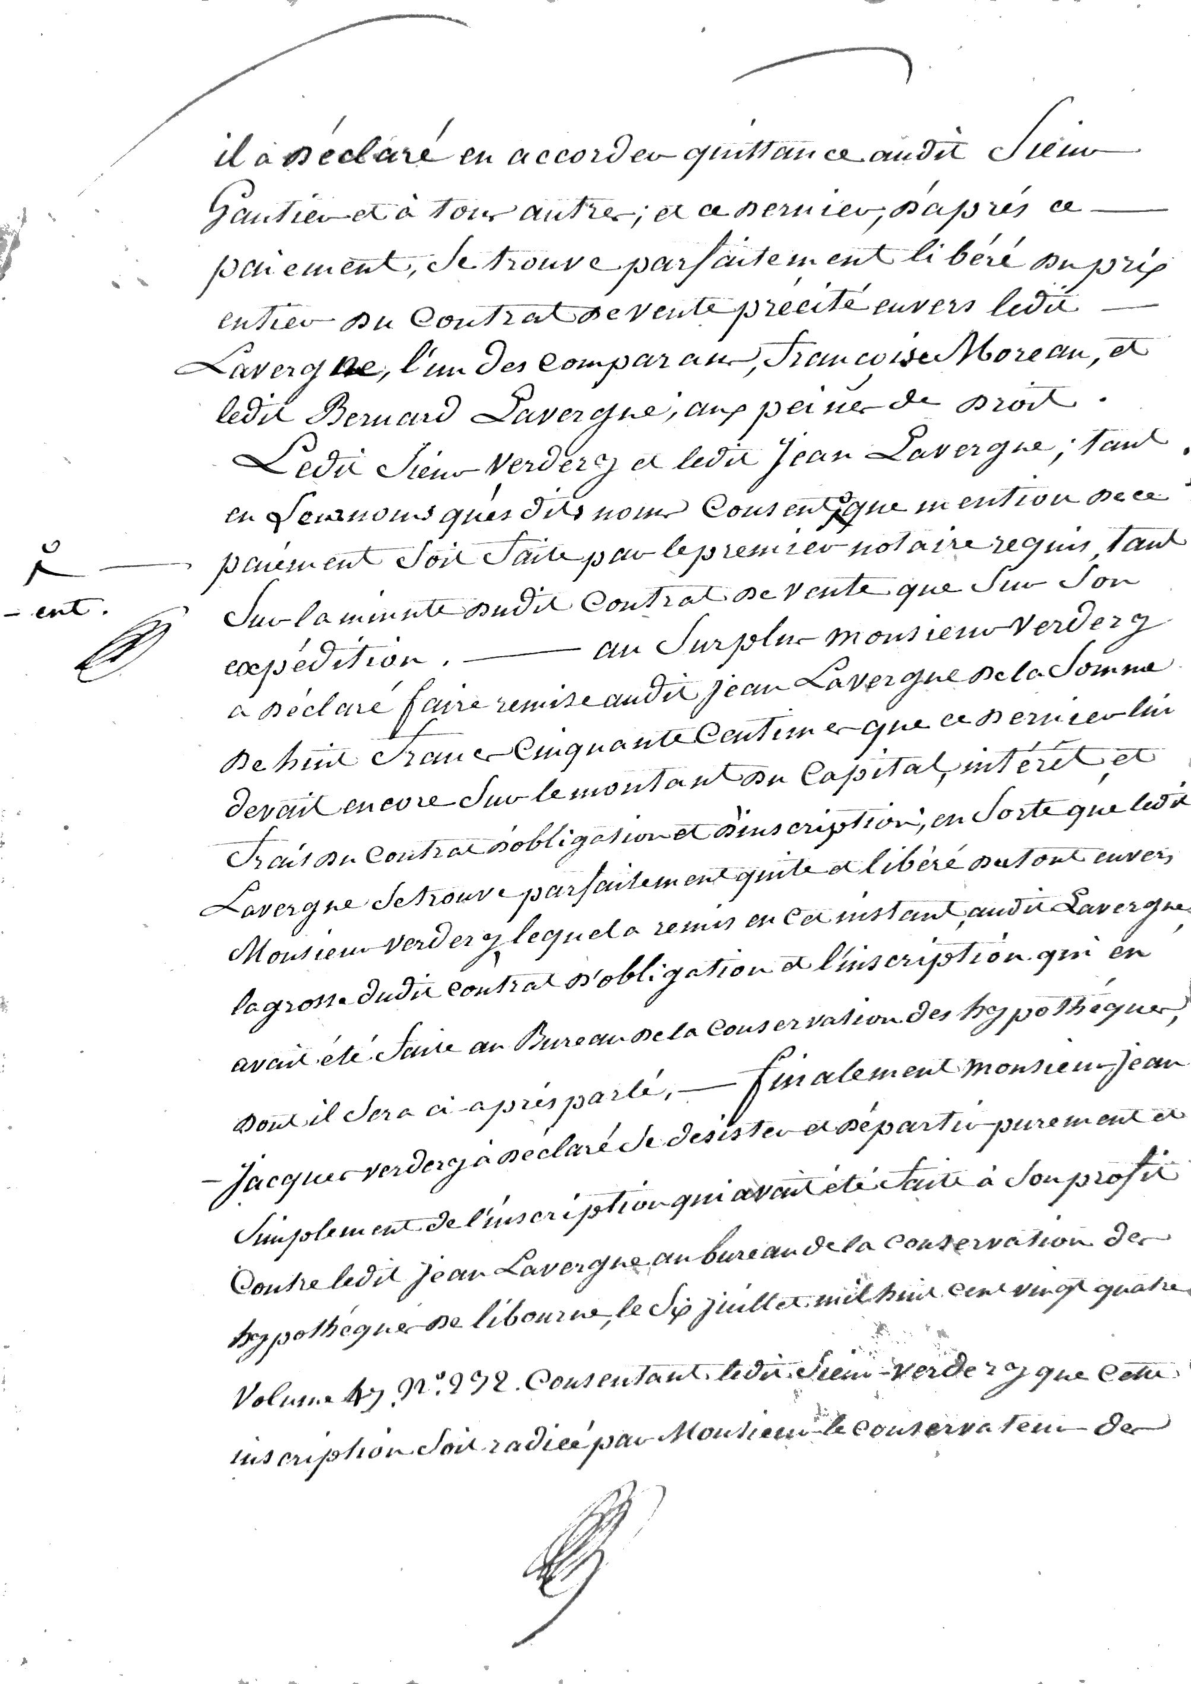 il a déclaré en accorder quittance audit Sieur
Gautier et à tous autres; et ce dernier, d'après ce
paiement, se trouve parfaitement libéré du prix
entier du contrat de vente précité envers ledit
Lavergne, l'un des comparans, françoise Moreau, et
ledit Bernard Lavergne; aux peines de droit.
Ledit Sieur Verdery et ledit Jean Lavergne; tant
en leurs noms qu'ès dits noms consent que mention de ce
paiement soit faite par le premier notaire requis, tant
- ent.
Sur la minute dudit contrat de vente que Sur Son
expédition. — au Surplus monsieur Verdery
a déclaré faire remise audit jean Lavergne de la Somme
de huit francs cinquante centimes que ce dernier lui
devait encore Sur le montant du capital, intérêt et
frais du contrat d'obligation et d'inscription; en Sorte que ledit
Lavergne Se trouve parfaitement quite et libéré du tout envers
Monsieur Verdery lequel a remis en cet instant, audit Lavergne,
la grosse dudit contrat d'obligation et l'inscription qui en
avait été faite au Bureau de la Conservation des hypothéques,
dont il Sera ci-après parlé. — finalement monsieur jean
jacques Verdery à déclaré Se desister et départir purement et
Simplement de l'inscription qui avait été faite à Son profit
Contre ledit jean Lavergne au bureau de la Conservation des
hypothéques de libourne, le Six juillet mil huit cent vingt quatre
Volume 47 N.º 292. Consentant ledit Sieur Verdery que cette
inscription Soit radiée par Monsieur le conservateur des